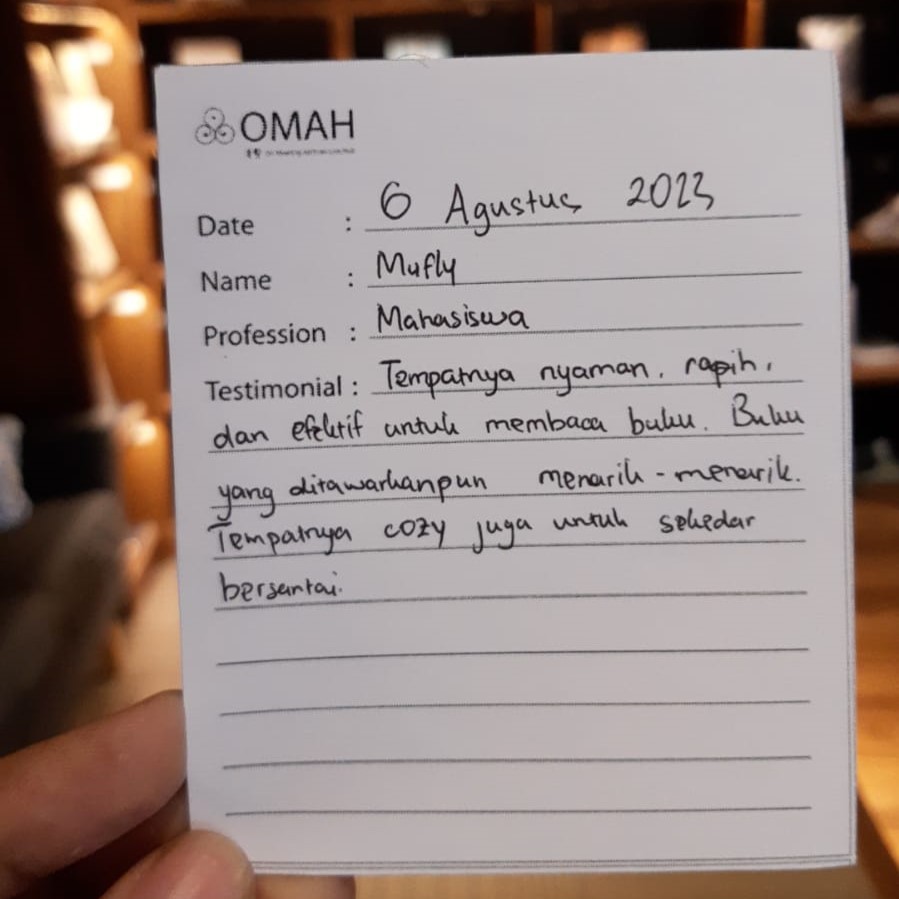 OMAH
Date : 6 Agustus 2023
Name : Mufly
Profession : Mahasiswa
Testimonial : Tempatnya nyaman, rapih,
dan efektif untuk membaca buku. Buku
yang ditawarkanpun menarik-menarik.
Tempatnya cozy juga untuk sekedar
bersantai.